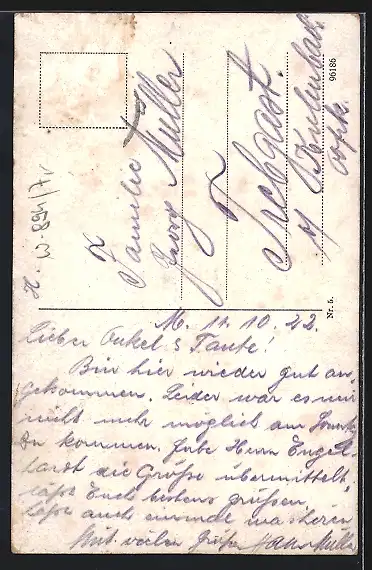 Familie
Georg Müller
Trebgast.
b/ Kulmbach
Nr. 5.
96186
M. 11.10.22.
Lieber Onkel & Tante!
Bin hier wieder gut an-
gekommen. Leider war es mir
nicht mehr möglich am Sonnt.
zu kommen. Habe Herrn Engel-
hardt die Grüße übermittelt,
läßt Euch bestens grüßen,
laßt auch einmal was hören
Mit vielen Grüßen Hans Müller